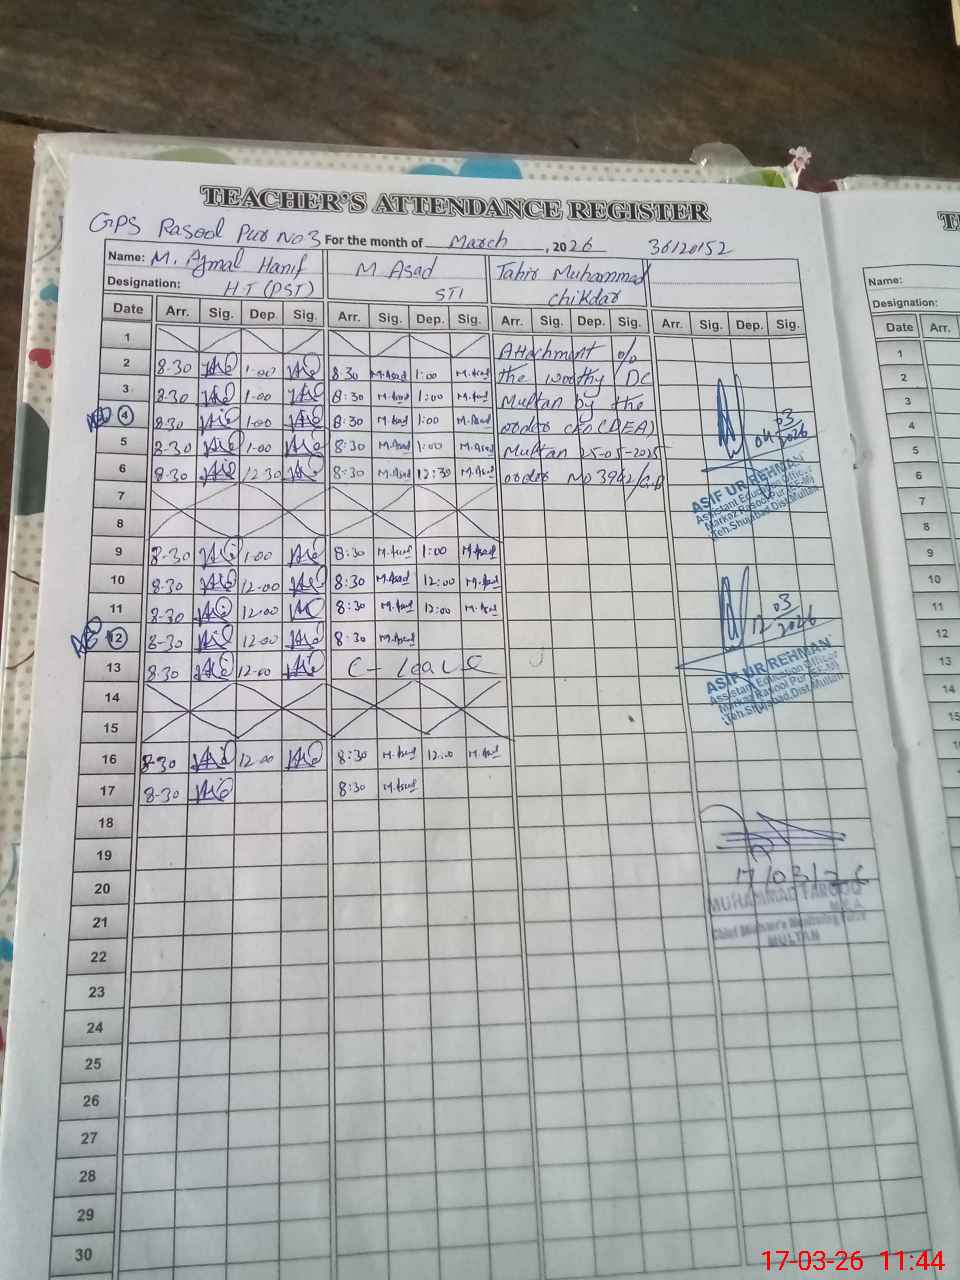 TEACHER'S ATTENDANCE REGISTER
GPS Rasool Pur No 3 For the month of March, 2026 36120152
Name: M. Ajmal Hanif M Asad Tahir Muhammad
Designation: H.T (PST) STI Chikdar
Date Arr. Sig. Dep. Sig. Arr. Sig. Dep. Sig. Arr. Sig. Dep. Sig. Arr. Sig. Dep. Sig.
1 Attachment o/o
2 8-30 1-00 8:30 M.Asad 1:00 M.Asad the worthy DC
3 8-30 1-00 8:30 M.Asad 1:00 M.Asad Multan by the
4 8-30 1-00 8:30 M.Asad 1:00 M.Asad order CEO (DEA)
5 8-30 1-00 8:30 M.Asad 1:00 M.Asad Multan 25-05-2025
6 8-30 12-30 8:30 M.Asad 12:30 M.Asad order No 3942/G.B
04 03 2026
ASIF UR REHMAN
Assistant Education Officer
Markaz Rasool Pur (E-M)
Teh.Shujabad,Dist.Multan
7
8
9 8-30 1-00 8:30 M.Asad 1:00 M.Asad
10 8-30 12-00 8:30 M.Asad 12:00 M.Asad
11 8-30 12-00 8:30 M.Asad 12:00 M.Asad
12 8-30 12-00 8:30 M.Asad
13 8-30 12-00 C-Leave
12 03 2026
ASIF UR REHMAN
Assistant Education Officer
Markaz Rasool Pur (E-M)
Teh.Shujabad,Dist.Multan
14
15
16 8-30 12-00 8:30 M.Asad 12:00 M.Asad
17 8-30 8:30 M.Asad
18
19
20
17/03/26
MUHAMMAD FAROOQ
M.E.A
Chief Minister's Monitoring Force
MULTAN
21
22
23
24
25
26
27
28
29
30
Name:
Designation:
Date Arr.
1
2
3
4
5
6
7
8
9
10
11
12
13
14
15
17-03-26 11:44